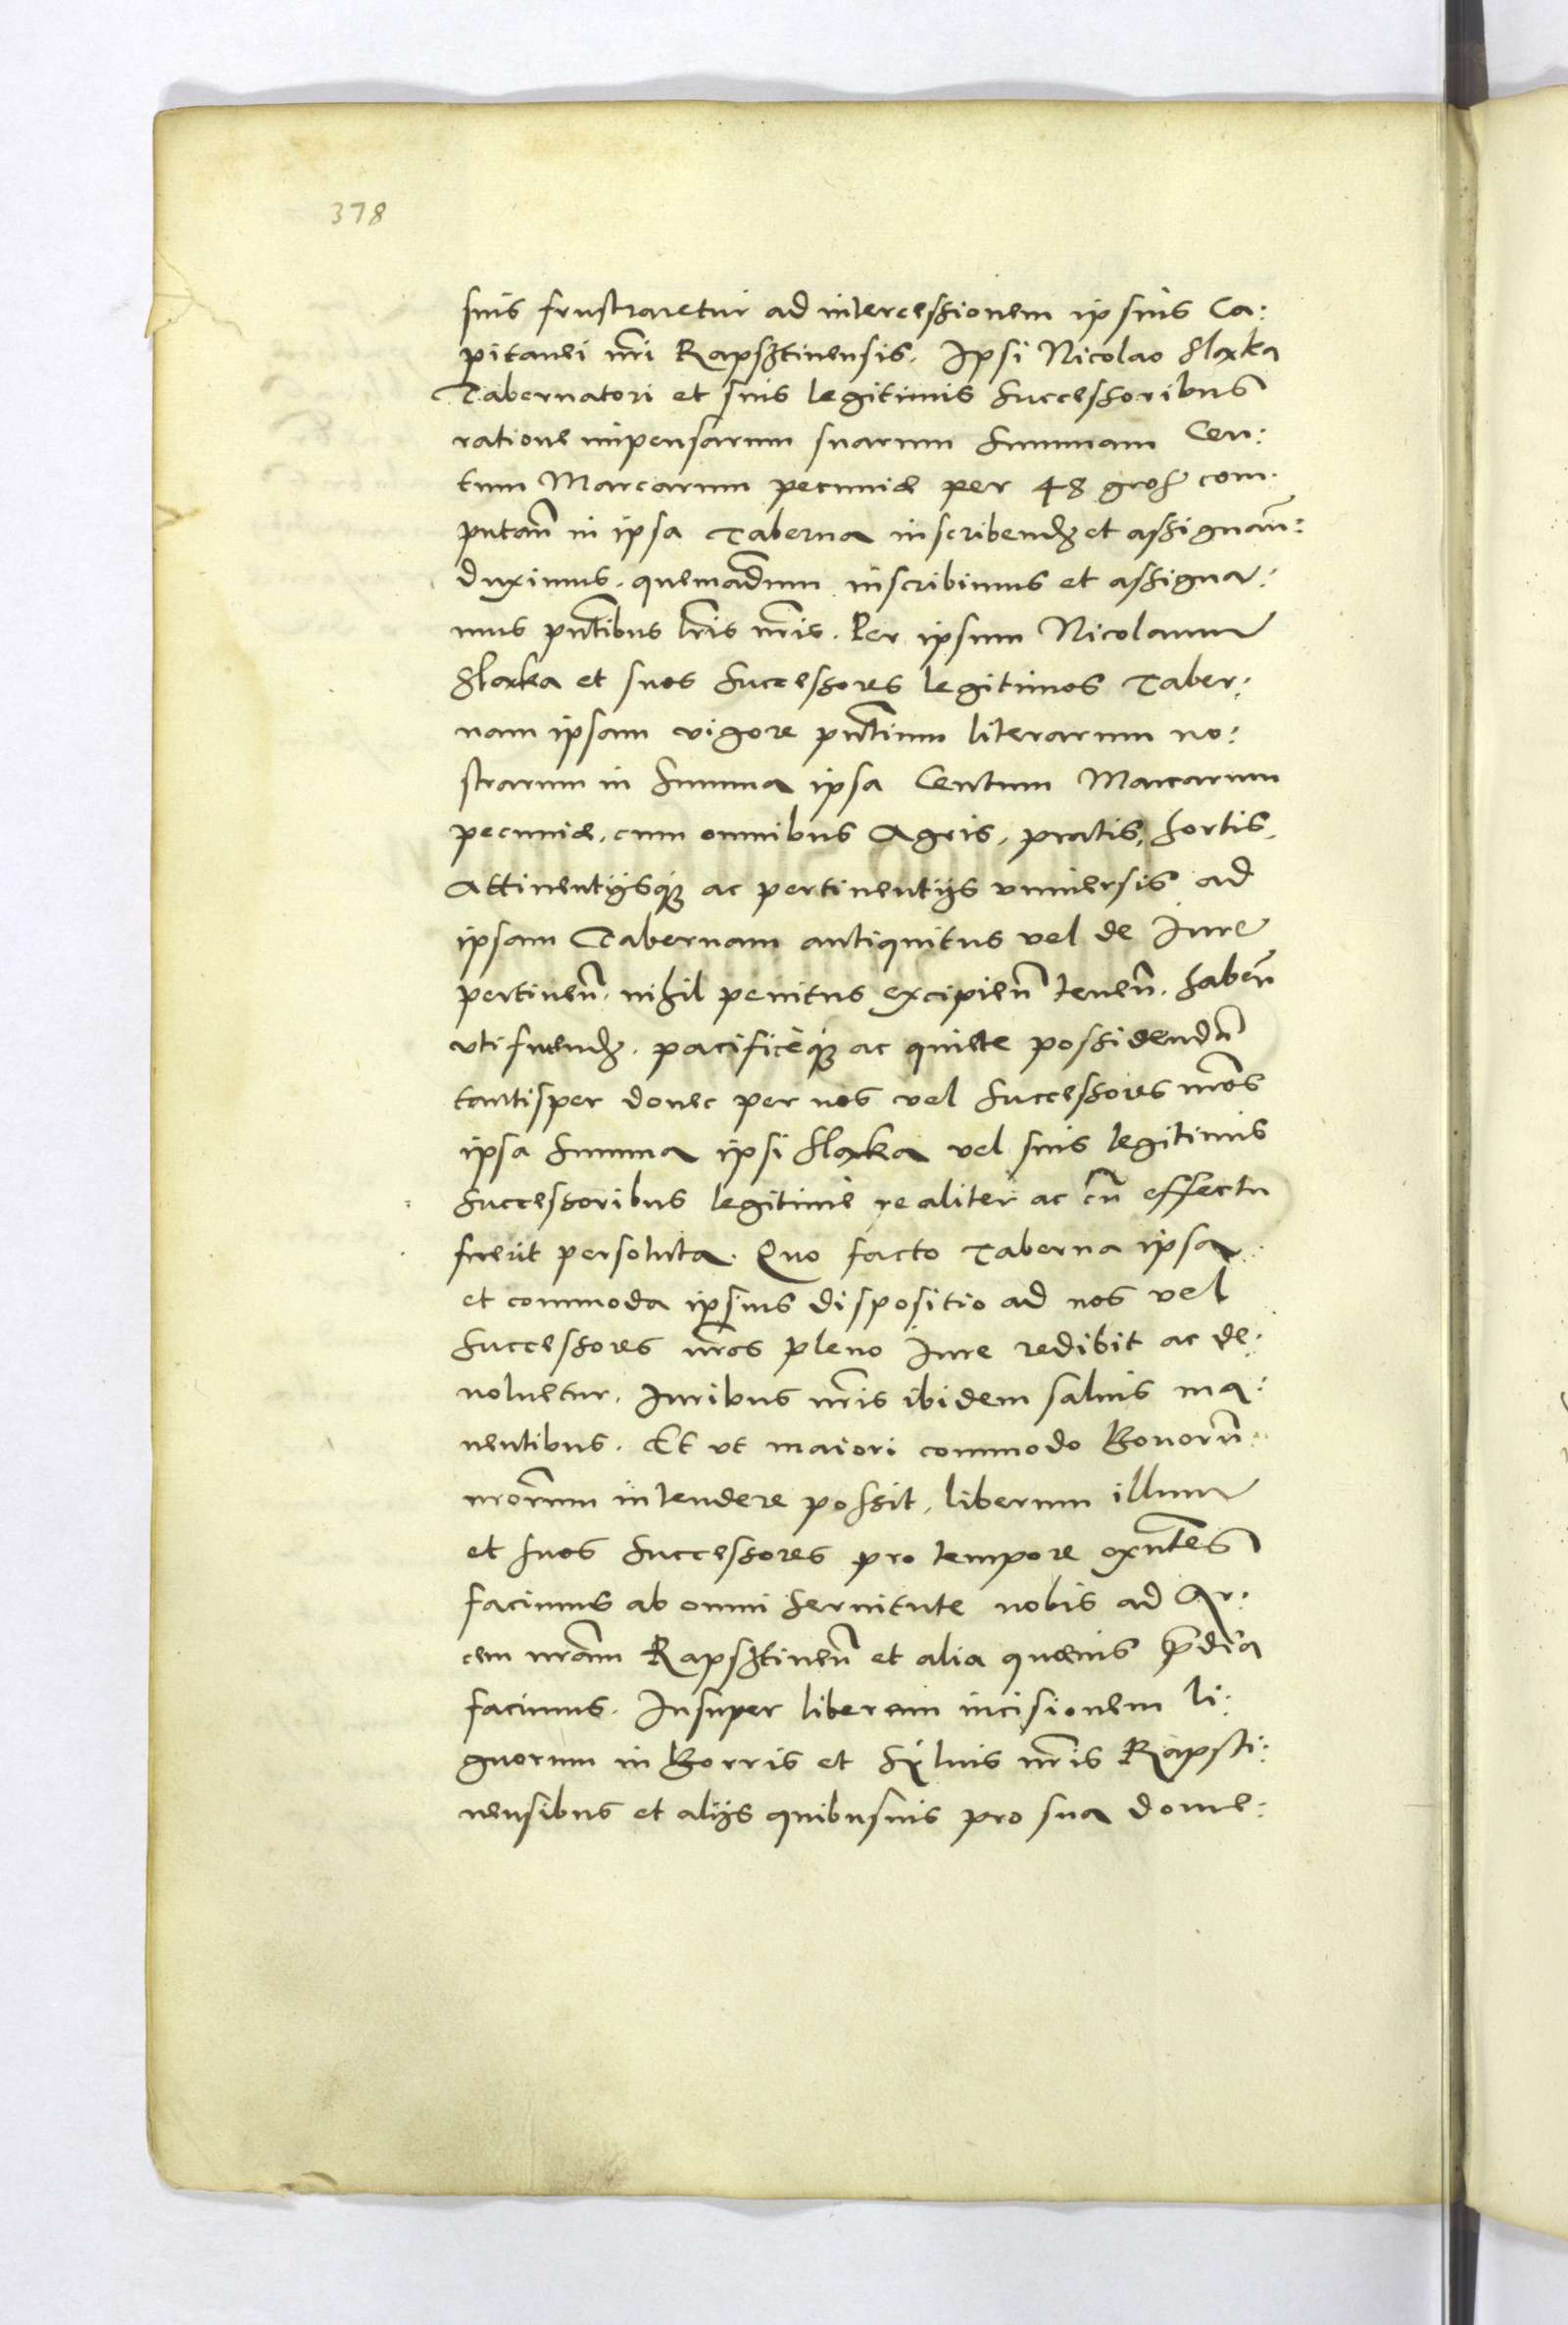 378
suis frustraretur ad intercessionem ipsius Ca:
pitanei nri Rapsztinensis. Ipsi Nicolao Slaxka
Tabernatori et suis legitimis Successoribus
ratione impensarum suarum Summam Cen:
tum Marcarum pecuniæ per 48 gross com.
putan in ipsa Taberna inscribend et assignan:
duximus. quemadmum inscribimus et assigna:
mus pntibus lris nris. Per ipsum Nicolaum
Slaxka et suos Successores legitimos Taber:
nam ipsam vigore pntium literarum no:
strarum in Summa ipsa Centum Marcarum
pecuniæ. cum omnibus Agris, pratis, hortis,
Attinentijsq3 ac pertinentijs vniuersis ad
ipsam Tabernam antiquitus vel de Iure
pertinen. nihil penitus excipien tenen. haben
vtifruend. pacificeq3 ac quiete possidendam
tantisper donec per nos vel Successores nros
ipsa Summa ipsi Slaxka vel suis legitimis
Successoribus legitime realiter ac cu effectu
fuerit persoluta. Quo facto Taberna ipsa
et commoda ipsius dispositio ad nos vel
Successores nros pleno Iure redibit ac de:
uoluetur. Iuribus nris ibidem saluis ma:
nentibus. Et vt maiori commodo Bonoru
nrorum intendere possit, liberum illum
et suos Successores pro tempore exntes
facimus ab omni Seruitute nobis ad Ar:
cem nram Rapsztinen et alia quæuis prædia
facimus. Insuper liberam incisionem li:
gnorum in Borris et Syluis nris Rapsti:
nensibus et alijs quibusuis pro sua dome: